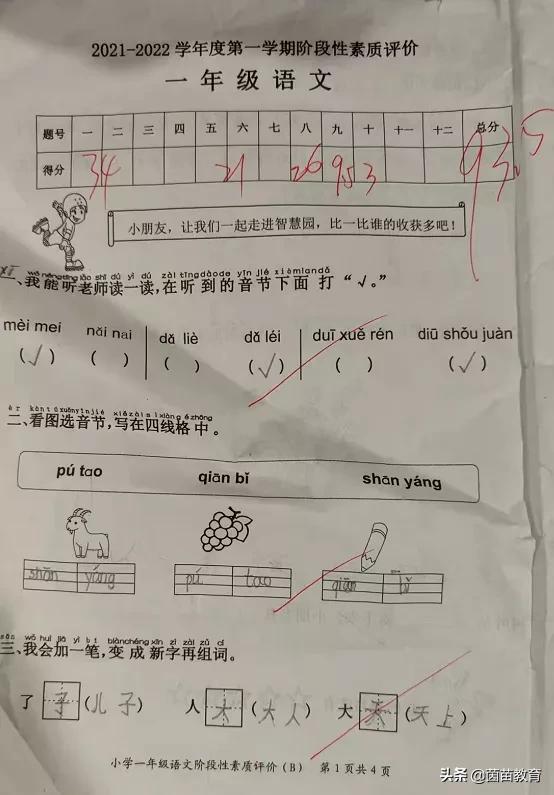 2021-2022 学年度第一学期阶段性素质评价
一 年 级 语 文
题号 一 二 三 四 五 六 七 八 九 十 十一 十二 总分
得分 34 21 26 9.5 3 93.5
小朋友，让我们一起走进智慧园，比一比谁的收获多吧！
一、我能听老师读一读，在听到的音节下面打“√。”
mèi mei nǎi nai dǎ liè dǎ léi duī xuě rén diū shǒu juàn
(√) ( ) ( ) (√) ( ) (√)
二、看图选音节，写在四线格中。
pú tao qiān bǐ shān yáng
shān yáng pú tao qiān bǐ
三、我会加一笔，变成新字再组词。
了 子 (儿子) 人 大 (大人) 大 天 (天上)
小学一年级语文阶段性素质评价（B） 第1页共4页
头条 @茵苗教育